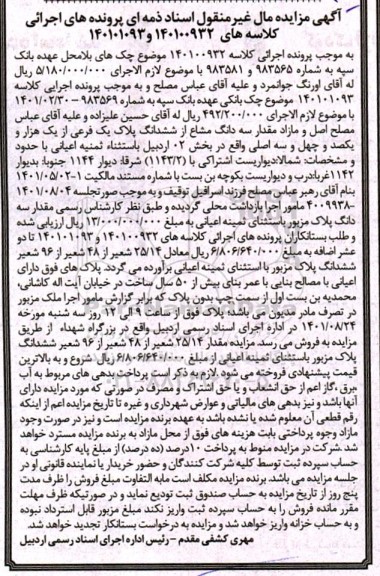 آگهی مزایده مال غیرمنقول اسناد ذمه ای پرونده های اجرائی
کلاسه های ۱۴۰۱۰۰۹۳۲ و ۱۴۰۱۰۱۰۹۳
به موجب پرونده اجرائی کلاسه ۱۴۰۱۰۰۹۳۲ موضوع چک های بلامحل عهده بانک
سپه به شماره ۹۸۳۵۶۵ و ۹۸۳۵۸۱ با موضوع لازم الاجرای ۵/۱۸۰/۰۰۰/۰۰۰ ریال
له آقای اورنگ جوانمرد و علیه آقای عباس مصلح و به موجب پرونده اجرایی کلاسه
۱۴۰۱۰۱۰۹۳ موضوع چک بانکی عهده بانک سپه به شماره ۹۸۳۵۶۹ - ۱۴۰۱/۰۲/۳۰
با موضوع لازم الاجرای ۴۹۲/۲۰۰/۰۰۰ ریال له آقای حسین علیزاده و علیه آقای عباس
مصلح اصل و مازاد مقدار سه دانگ مشاع از ششدانگ پلاک یک فرعی از یک هزار و
یکصد و چهل و سه اصلی واقع در بخش ۰۲ اردبیل باستثناء ثمنیه اعیانی با حدود
و مشخصات: شمالا:دیواریست اشتراکی با (۱۱۴۳/۲) شرقا: دیوار ۱۱۴۴ جنوبا: بدیوار
۱۱۴۲ غربا: درب و دیواریست بکوچه بن بست با شماره مستند مالکیت ۱-۱۴۰۱/۰۵/۰۲
بنام آقای رهبر عباس مصلح فرزند اسرافیل توقیف و به موجب صورتجلسه ۱۴۰۱/۰۸/۰۴
-۴۰۰۹۹۳۸ مامور اجرا بازداشت محلی گردیده و طبق نظر کارشناس رسمی مقدار سه
دانگ پلاک مزبور باستثنای ثمنیه اعیانی به مبلغ ۱۳/۰۰۰/۰۰۰/۰۰۰ ریال ارزیابی شده
و طلب بستانکاران پرونده های اجرائی کلاسه های ۱۴۰۱۰۰۹۳۲ و ۱۴۰۱۰۱۰۹۳ تا دو
عشر اضافه به مبلغ ۶/۸۰۶/۶۴۰/۰۰۰ ریال معادل ۲۵/۱۴ شعیر از ۴۸ شعیر از ۹۶ شعیر
ششدانگ پلاک مزبور با استثنای ثمنیه اعیانی برآورده می گردد. پلاک های فوق دارای
اعیانی با مصالح بنایی با عمر بنای بیش از ۵۰ سال ساخت در خیابان آیت اله کاشانی،
محمدیه بن بست اول از سمت چپ بدون پلاک که برابر گزارش مامور اجرا ملک مزبور
در تصرف مادر مدیون می باشد؛ پلاک فوق از ساعت ۹ الی ۱۲ روز سه شنبه مورخه
۱۴۰۱/۰۸/۲۴ در اداره اجرای اسناد رسمی اردبیل واقع در بزرگراه شهداء از طریق
مزایده به فروش می رسد. مزایده مقدار ۲۵/۱۴ شعیر از ۴۸ شعیر از ۹۶ شعیر ششدانگ
پلاک مزبور باستثنای ثمنیه اعیانی از مبلغ ۶/۸۰۶/۶۴۰/۰۰۰ ریال شروع و به بالاترین
قیمت پیشنهادی فروخته می شود. لازم به ذکر است پرداخت بدهی های مربوط به آب
،برق ،گاز اعم از حق انشعاب و یا حق اشتراک و مصرف در صورتی که مورد مزایده دارای
آنها باشد و نیز بدهی های مالیاتی و عوارض شهرداری و غیره تا تاریخ مزایده اعم از اینکه
رقم قطعی آن معلوم شده یا نشده باشد به عهده برنده مزایده است و نیز در صورت وجود
مازاد وجوه پرداختی بابت هزینه های فوق از محل مازاد به برنده مزایده مسترد خواهد
شد .شرکت در مزایده منوط به پرداخت ۱۰درصد (ده درصد) از مبلغ پایه کارشناسی به
حساب سپرده ثبت توسط کلیه شرکت کنندگان و حضور خریدار یا نماینده قانونی او در
جلسه مزایده می باشد. برنده مزایده مکلف است مابه التفاوت مبلغ فروش را ظرف مدت
پنج روز از تاریخ مزایده به حساب صندوق ثبت تودیع نماید و در صورتیکه ظرف مهلت
مقرر مانده فروش را به حساب سپرده ثبت واریز نکند مبلغ مزبور قابل استرداد نبوده
و به حساب خزانه واریز خواهد شد و مزایده به درخواست بستانکار تجدید خواهد شد.
مهری کشفی مقدم - رئیس اداره اجرای اسناد رسمی اردبیل